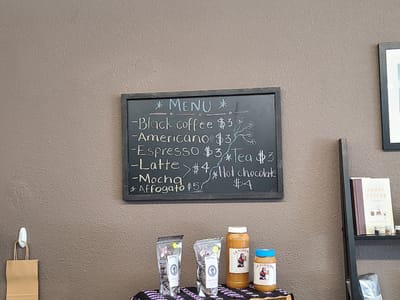 * MENU *
- Black coffee $3
- Americano $3
- Espresso $3
- Latte
- Mocha > $4
* Affogato $5
* Tea $3
* Hot chocolate
$4